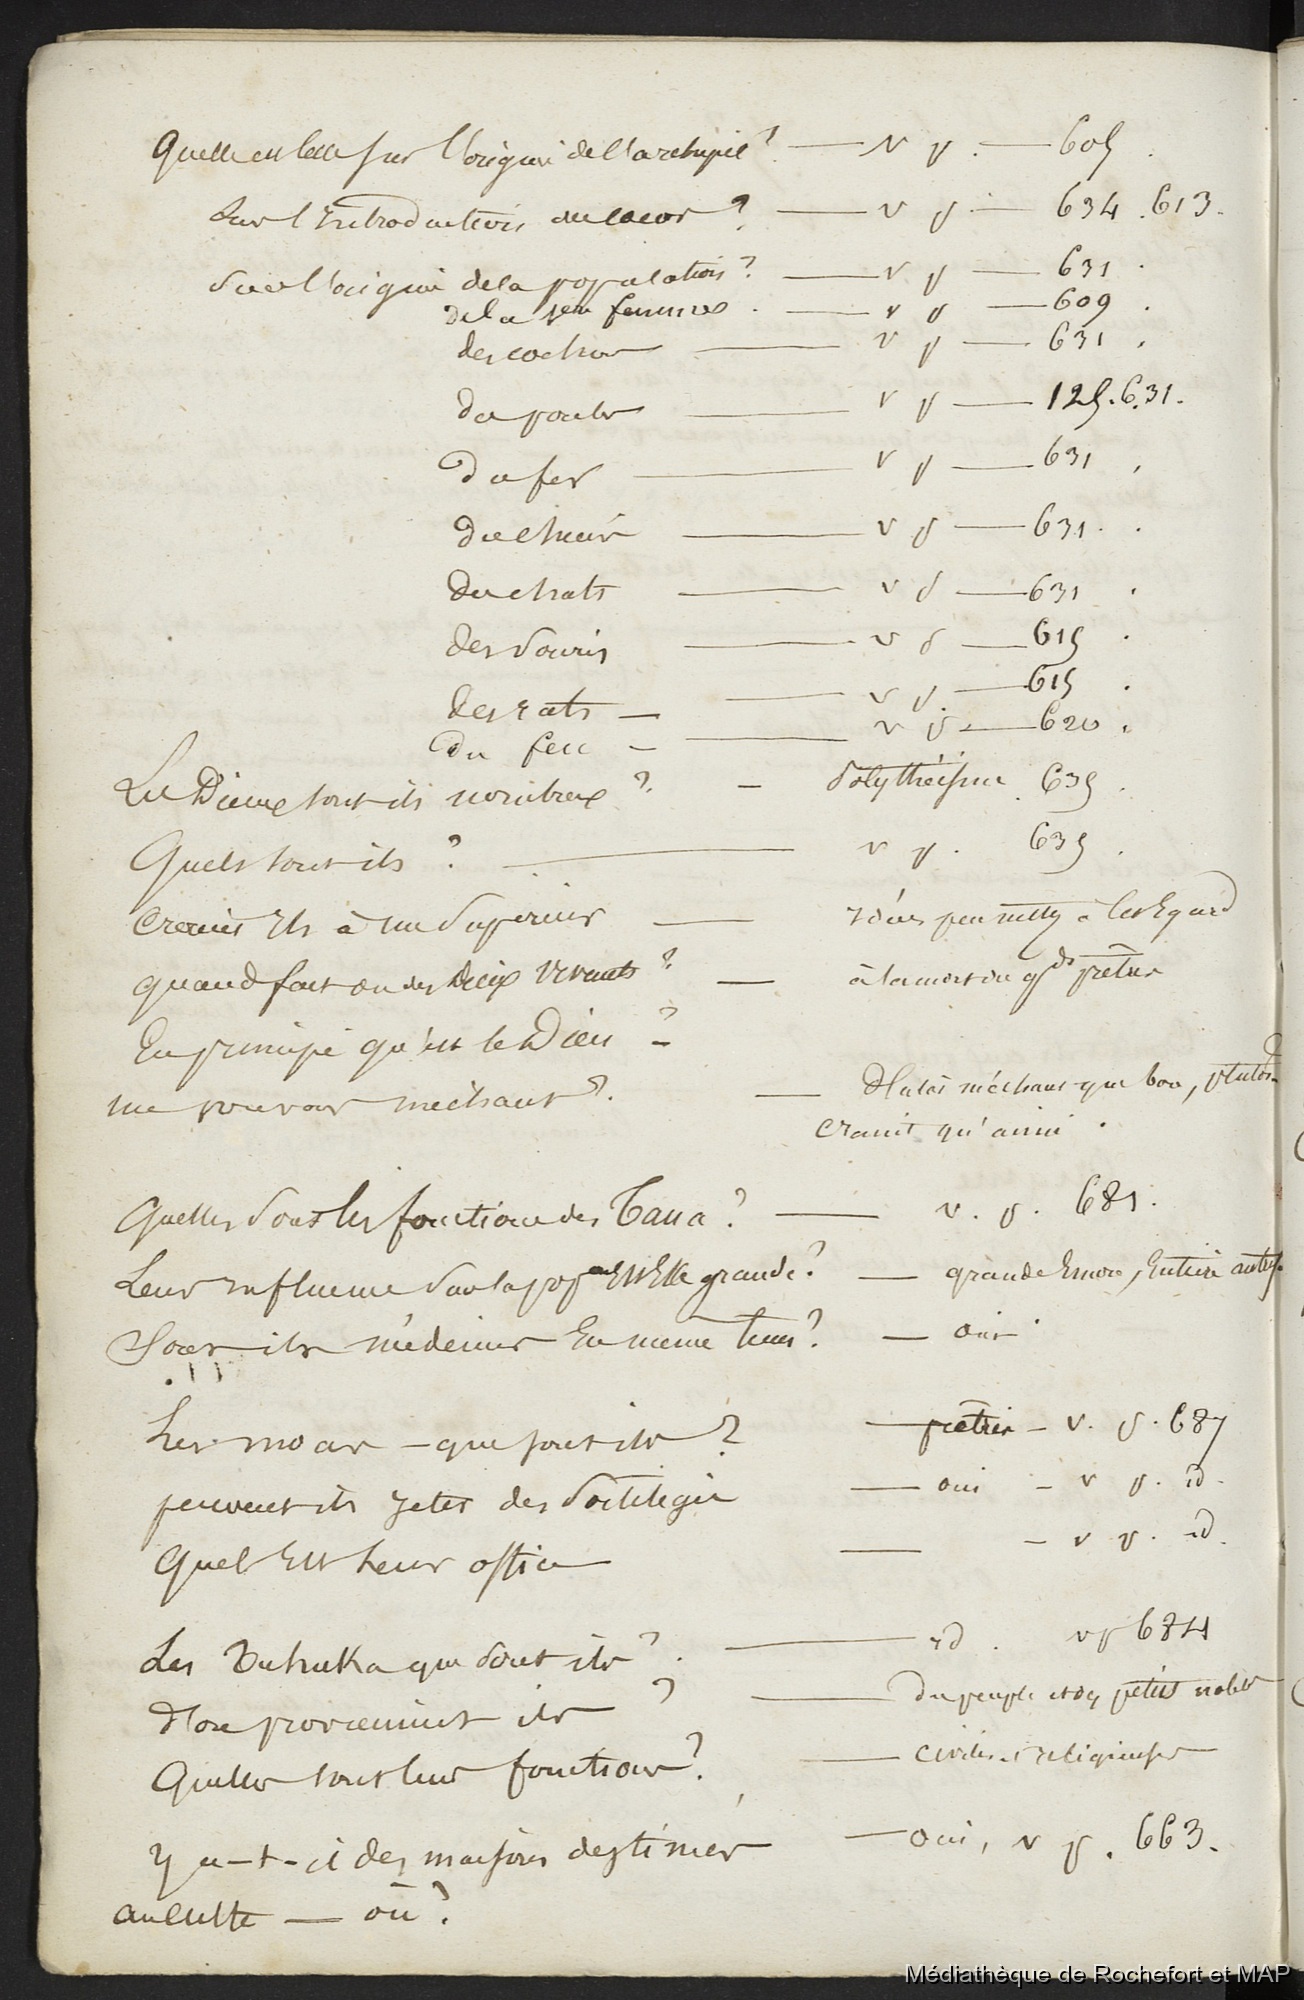 Quelle est celle sur l'origine de l'archipel? — v p. — 605.
Sur l'introduction du cocos? — v p — 634. 613.
Sur l'origine de la population? — v p — 631.
de la 1ere femme. — v p — 609.
des cochons — v p — 631.
des poules — v p — 125. 631.
du fer — v p — 631.
du chien — v p — 631.
des chats — v p — 631.
des souris — v p — 615.
des rats — v p. — 615.
du feu — v p. — 620.
Les Dieux sont ils nombreux? — Polythéisme. 635.
Quels sont ils? — v p. 635.
Croient ils à un Supérieur — idées peu nettes à cet Egard
quand fait on des Dieux vivants? — à la mort des gds prêtres
En principe qu'est le Dieu? —
un pouvoir méchant? — Plutôt méchant que bon, plutôt
craint qu'aimé.
Quelles sont les fonctions des Taua? — v. p. 681.
Leur influence sur la popon Est Elle grande? — grande Encore, Entière autrefs.
Sont ils médecins En même tems? — oui.
Les moas — que sont ils? — prêtres — v. p. 687
peuvent ils jeter des Sortilèges — oui — v p. id.
Quel Est Leur office — — v p. id.
Les Tuhuka que sont ils? — id. v p 684
D'où proviennent ils? — du peuple et des petits nobles
Quelles sont leurs fonctions? — civiles et religieuses
Y a-t-il des maisons destinées — oui, v p. 663.
au culte — où?
Médiathèque de Rochefort et MAP